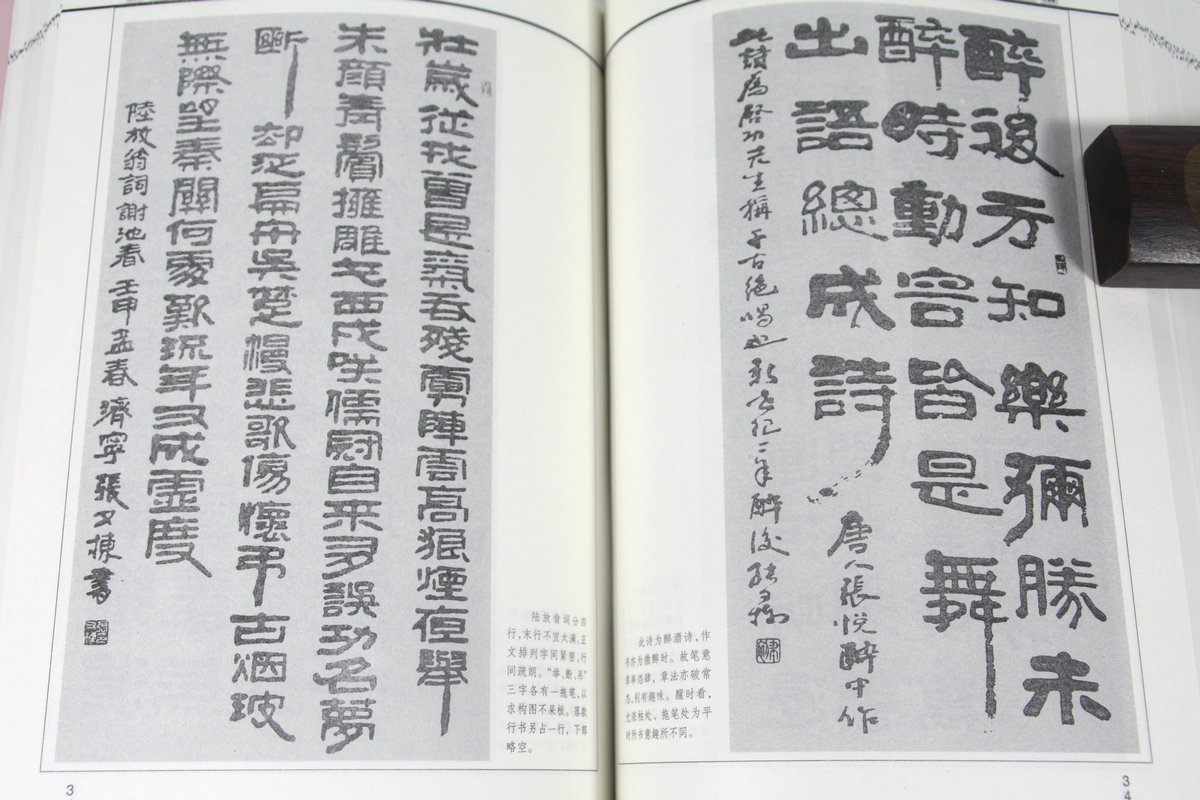 壯歲從戎曾是氣吞殘虜陣雲高狼煙夜舉
朱顏青鬢擁雕戈西戍咲儒冠自來多誤功名夢
斷却泛扁舟吳楚慢悲歌傷懷弔古烟波
無際望秦關何處歎流年又成虛度
陸放翁詞謝池春 壬申孟春 濟寧張又棟書
陆放翁词分四
行,末行不宜太满。正
文排列字间紧密,行
间疏朗。“举、断、吊”
三字各有一拖笔,以
求构图不呆板。落款
行书另占一行,下部
略空。
3
醉後方知樂彌勝未
醉時動容皆是舞
出語總成詩
唐人張悅醉中作
此詩為啓功先生稱千古絕唱也新世紀一年醉後張又棟
此诗为醉酒诗,作
书亦为微醉时。故笔意
草率恣肆,章法亦破常
态,别有趣味。醒时看,
尤浓枯处、拖笔处为平
时所书意趣所不同。
3
4